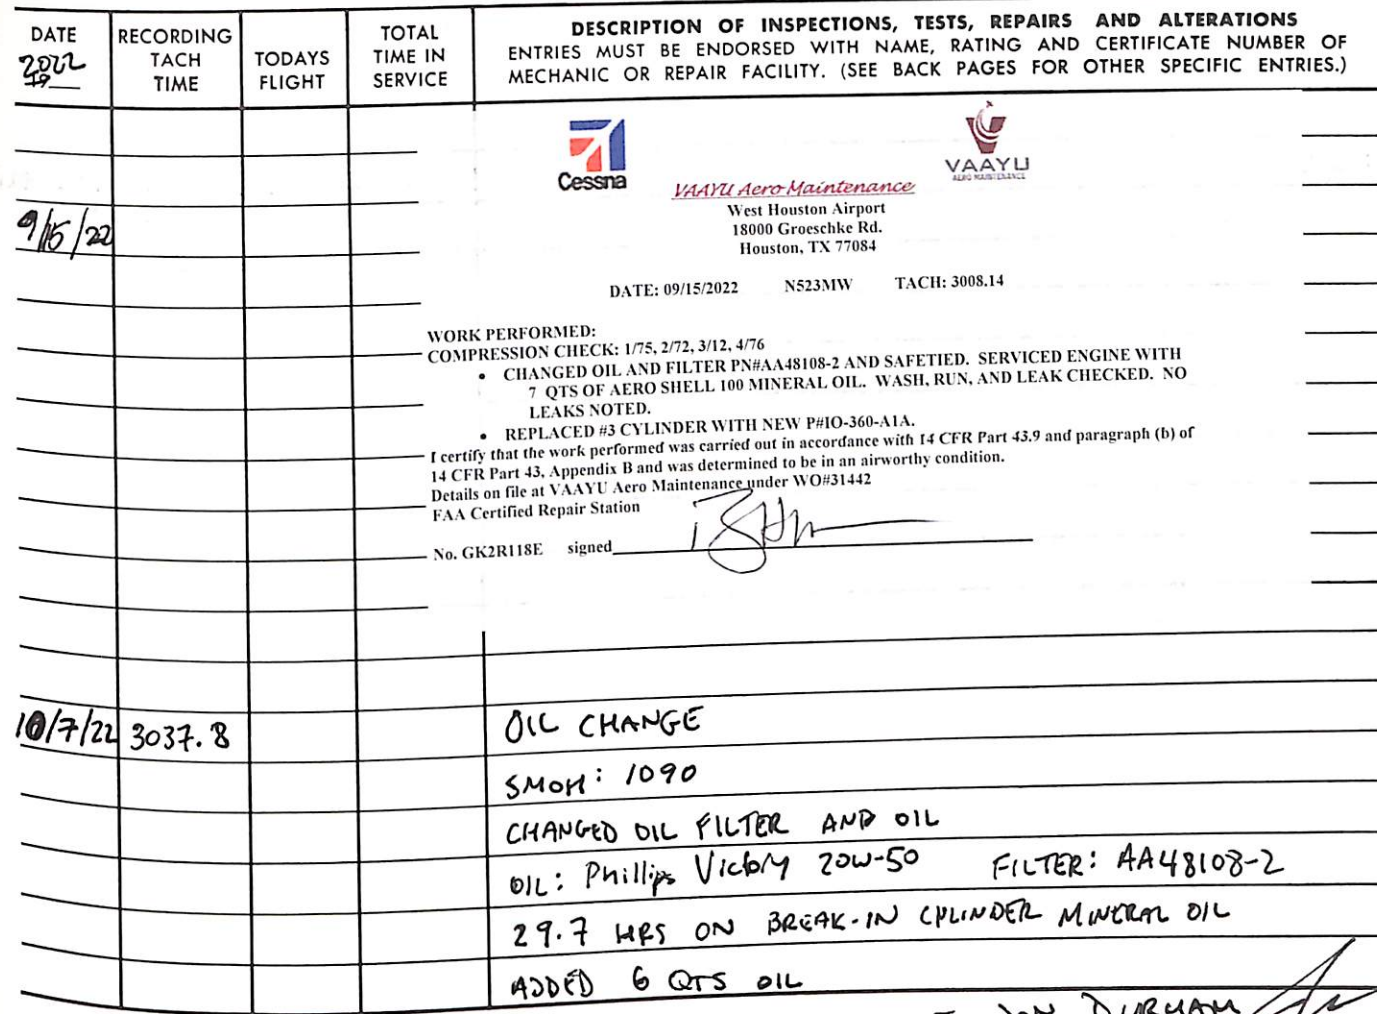 DATE
2022
19
RECORDING
TACH
TIME
TODAYS
FLIGHT
TOTAL
TIME IN
SERVICE
DESCRIPTION OF INSPECTIONS, TESTS, REPAIRS AND ALTERATIONS
ENTRIES MUST BE ENDORSED WITH NAME, RATING AND CERTIFICATE NUMBER OF
MECHANIC OR REPAIR FACILITY. (SEE BACK PAGES FOR OTHER SPECIFIC ENTRIES.)
Cessna
VAAYU
AERO MAINTENANCE
VAAYU Aero Maintenance
West Houston Airport
18000 Groeschke Rd.
Houston, TX 77084
9/15/22
DATE: 09/15/2022 N523MW TACH: 3008.14
WORK PERFORMED:
COMPRESSION CHECK: 1/75, 2/72, 3/12, 4/76
• CHANGED OIL AND FILTER PN#AA48108-2 AND SAFETIED. SERVICED ENGINE WITH
7 QTS OF AERO SHELL 100 MINERAL OIL. WASH, RUN, AND LEAK CHECKED. NO
LEAKS NOTED.
• REPLACED #3 CYLINDER WITH NEW P#IO-360-A1A.
I certify that the work performed was carried out in accordance with 14 CFR Part 43.9 and paragraph (b) of
14 CFR Part 43, Appendix B and was determined to be in an airworthy condition.
Details on file at VAAYU Aero Maintenance under WO#31442
FAA Certified Repair Station
No. GK2R118E signed
10/7/22 3037.8 OIL CHANGE
SMOH: 1090
CHANGED OIL FILTER AND OIL
OIL: Phillips Victory 20W-50 FILTER: AA48108-2
29.7 HRS ON BREAK-IN CYLINDER MINERAL OIL
ADDED 6 QTS OIL
JON DURHAM